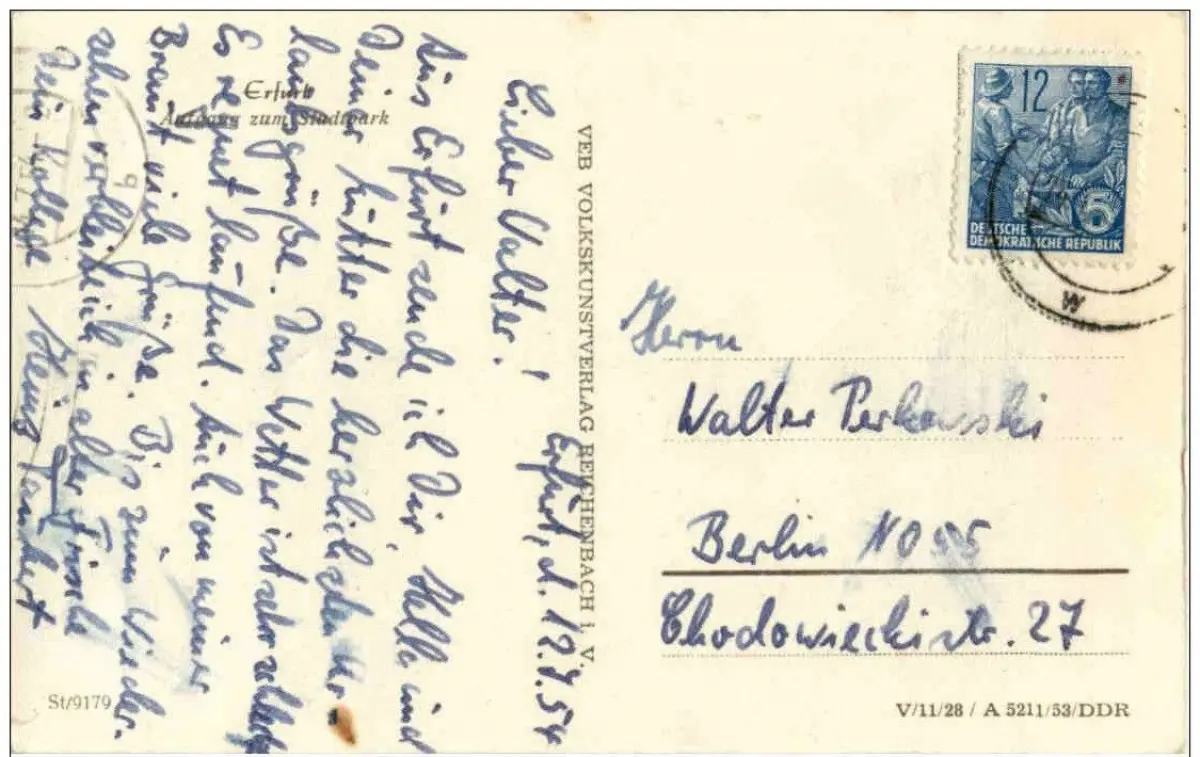 Erfurt
Aufgang zum Stadtpark
Erfurt, d. 12.7.54
Lieber Walter!
Aus Erfurt sende ich Dir, Hella und
Deiner Mutter die herzlichsten Ur
laubsgrüße. Das Wetter ist sehr schlecht
Es regnet laufend. Auch von meiner
Braut viele Grüße. Bis zum Wieder-
sehen verbleib ich in alter Frische
Dein Kollege Heinz
VEB VOLKSKUNSTVERLAG REICHENBACH i. V.
12
5
DEUTSCHE
DEMOKRATISCHE REPUBLIK
Herrn
Walter Perkowski
Berlin NO 55
Chodowieckistr. 27
St/9179
V/11/28 / A 5211/53/DDR